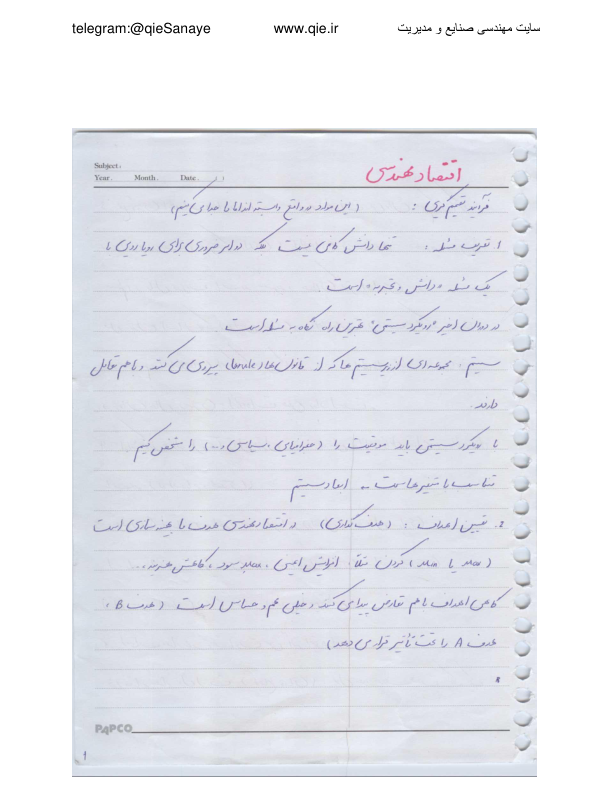 telegram:@qieSanaye www.qie.ir سایت مهندسی صنایع و مدیریت
Subject:
Year. Month. Date. / /
اقتصاد مهندسی
فرآیند تصمیم گیری : (این موارد در واقع وابسته اند اما ما جدا می کنیم)
۱ تعریف مسئله : تنها دانش کافی نیست بلکه دو امر ضروری برای رویارویی با
یک مسئله «دانش و تجربه» است.
در سوال اخیر "رویکرد سیستمی" بهترین راه نگاه به مسئله است
سیستم : مجموعه ای از زیرسیستم ها که از قانون ها و پیروی می کنند و باهم تقابل
دارند.
با رویکرد سیستمی باید موقعیت را (جغرافیایی، سیاسی و...) را مشخص کنیم.
متناسب با متغیرهاست ابعاد سیستم
2. تعیین اهداف : (هدف گذاری) در اقتصاد مهندسی هدف ما بهینه سازی است
( max یا min ) کردن مثلاً: افزایش ایمنی، max سود، کاهش هزینه...
گاهی اهداف باهم تعارض پیدا می کند و خیلی مهم و حساس است (هدف B،
هدف A را تحت تأثیر قرار می دهد)
PAPCO
1